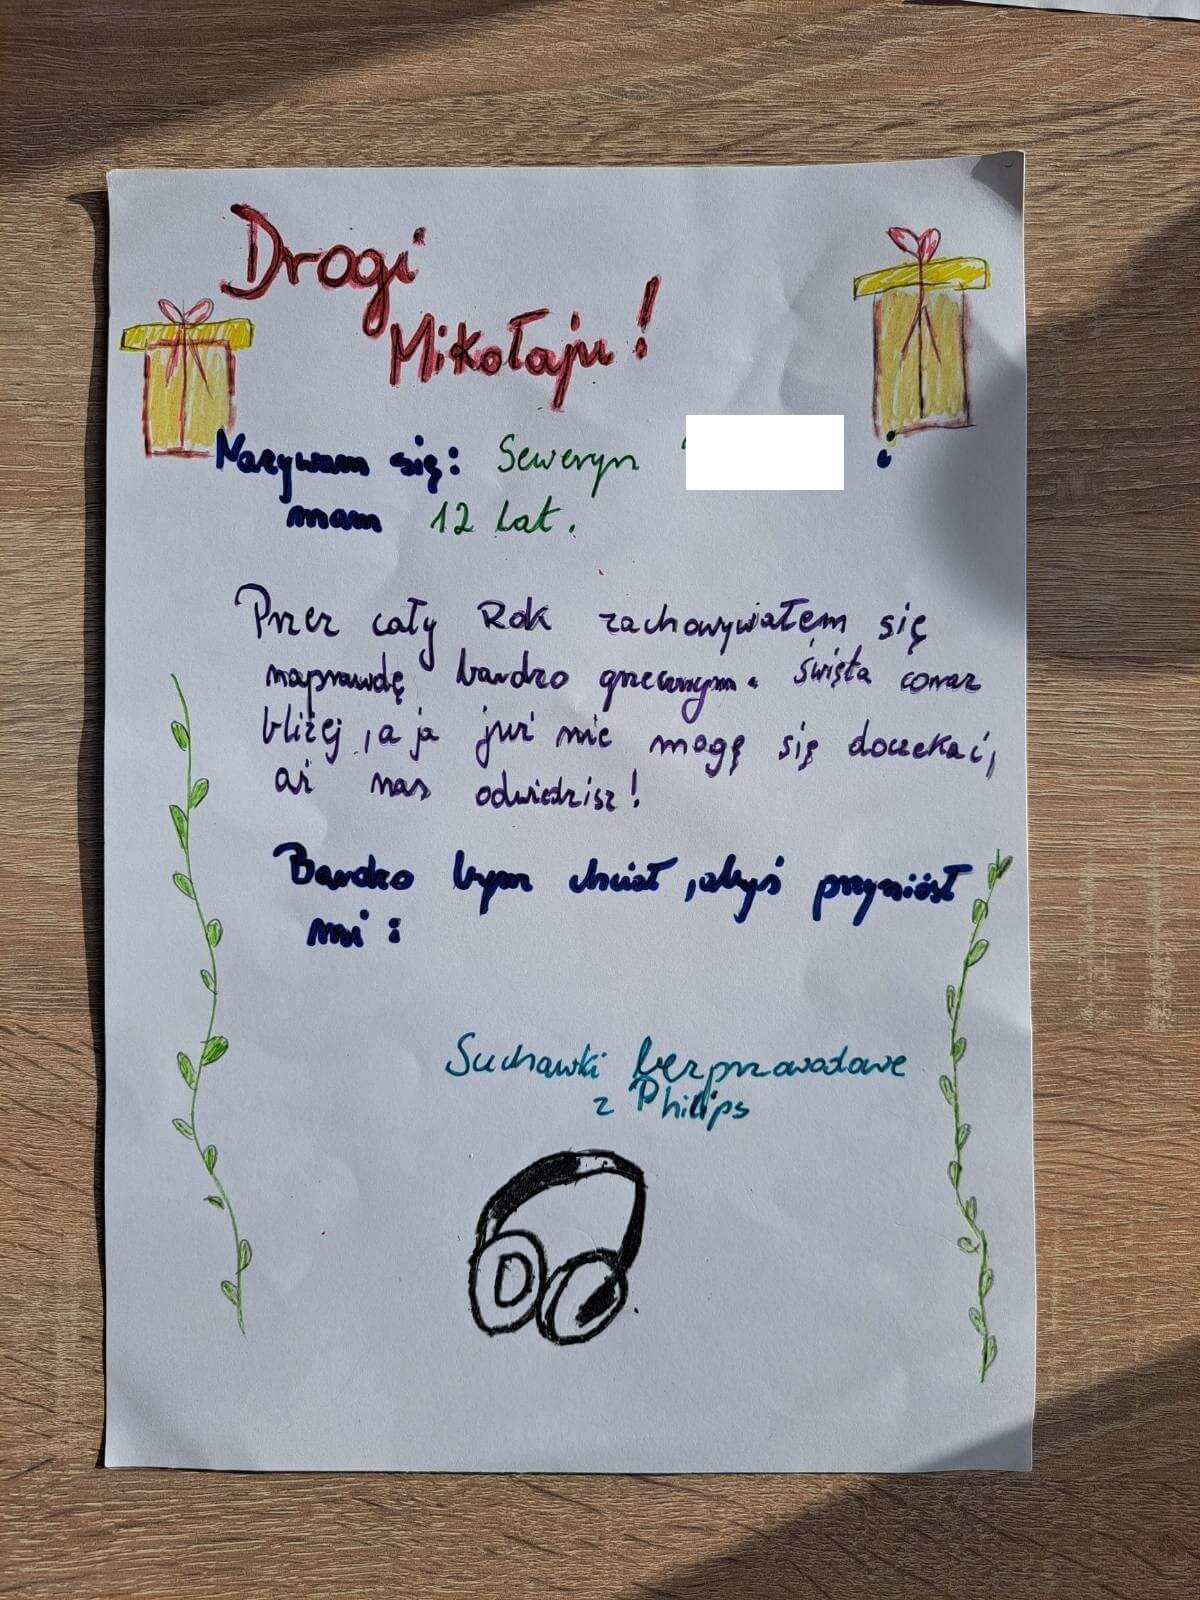 Drogi
Mikołaju!
Nazywam się: Seweryn i
mam 12 lat.
Przez cały Rok zachowywałem się
naprawdę bardzo grzecznym. święta coraz
bliżej, a ja już nie mogę się doczekać,
aż nas odwiedzisz!
Bardzo bym chciał, abyś przyniósł
mi:
Suchawki bezprzwodowe
z Philips